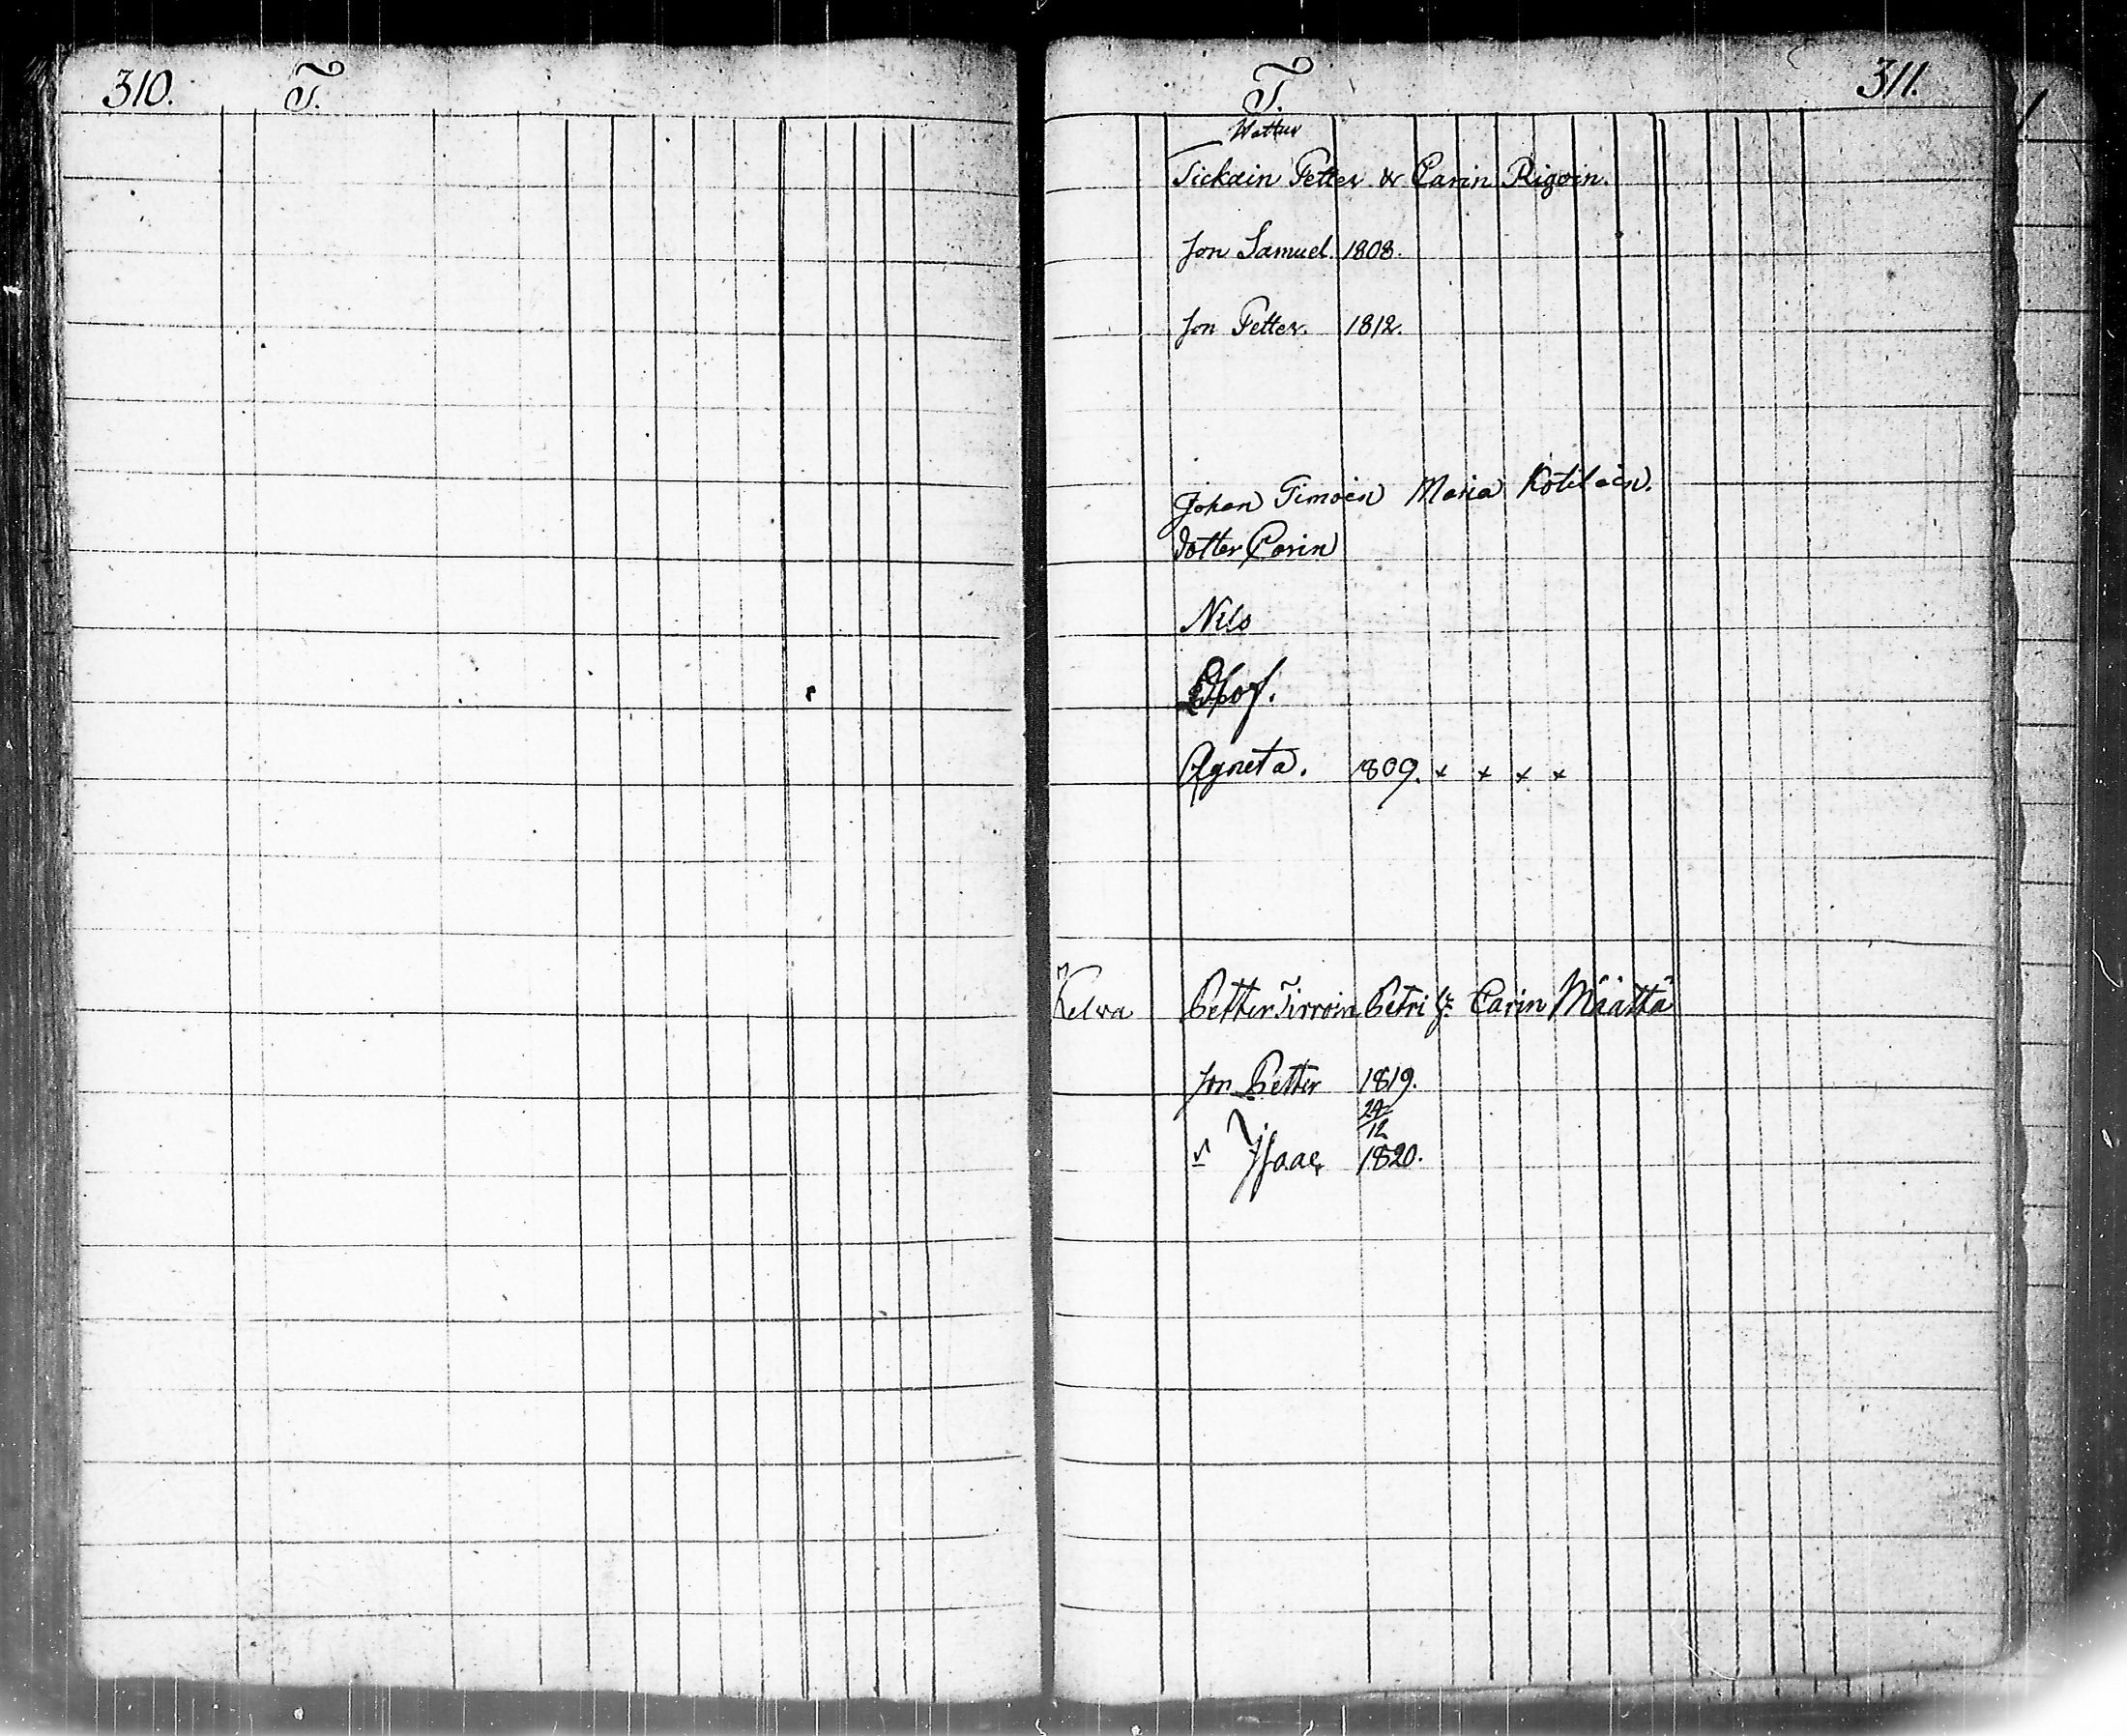 310. T.
T. 311.
Wattus
Tickain Petter & Carin Rigoin.
Son Samuel. 1808.
Son Petter. 1812.
Johan Timoin Maria Kotilain.
dotter Carin
Nils
Olof.
Agneta. 1809. x x x x
Kelva Petter Tirroin Petri f: Carin Määttä
Son Petter 1819.
24/12
s Isaac 1820.